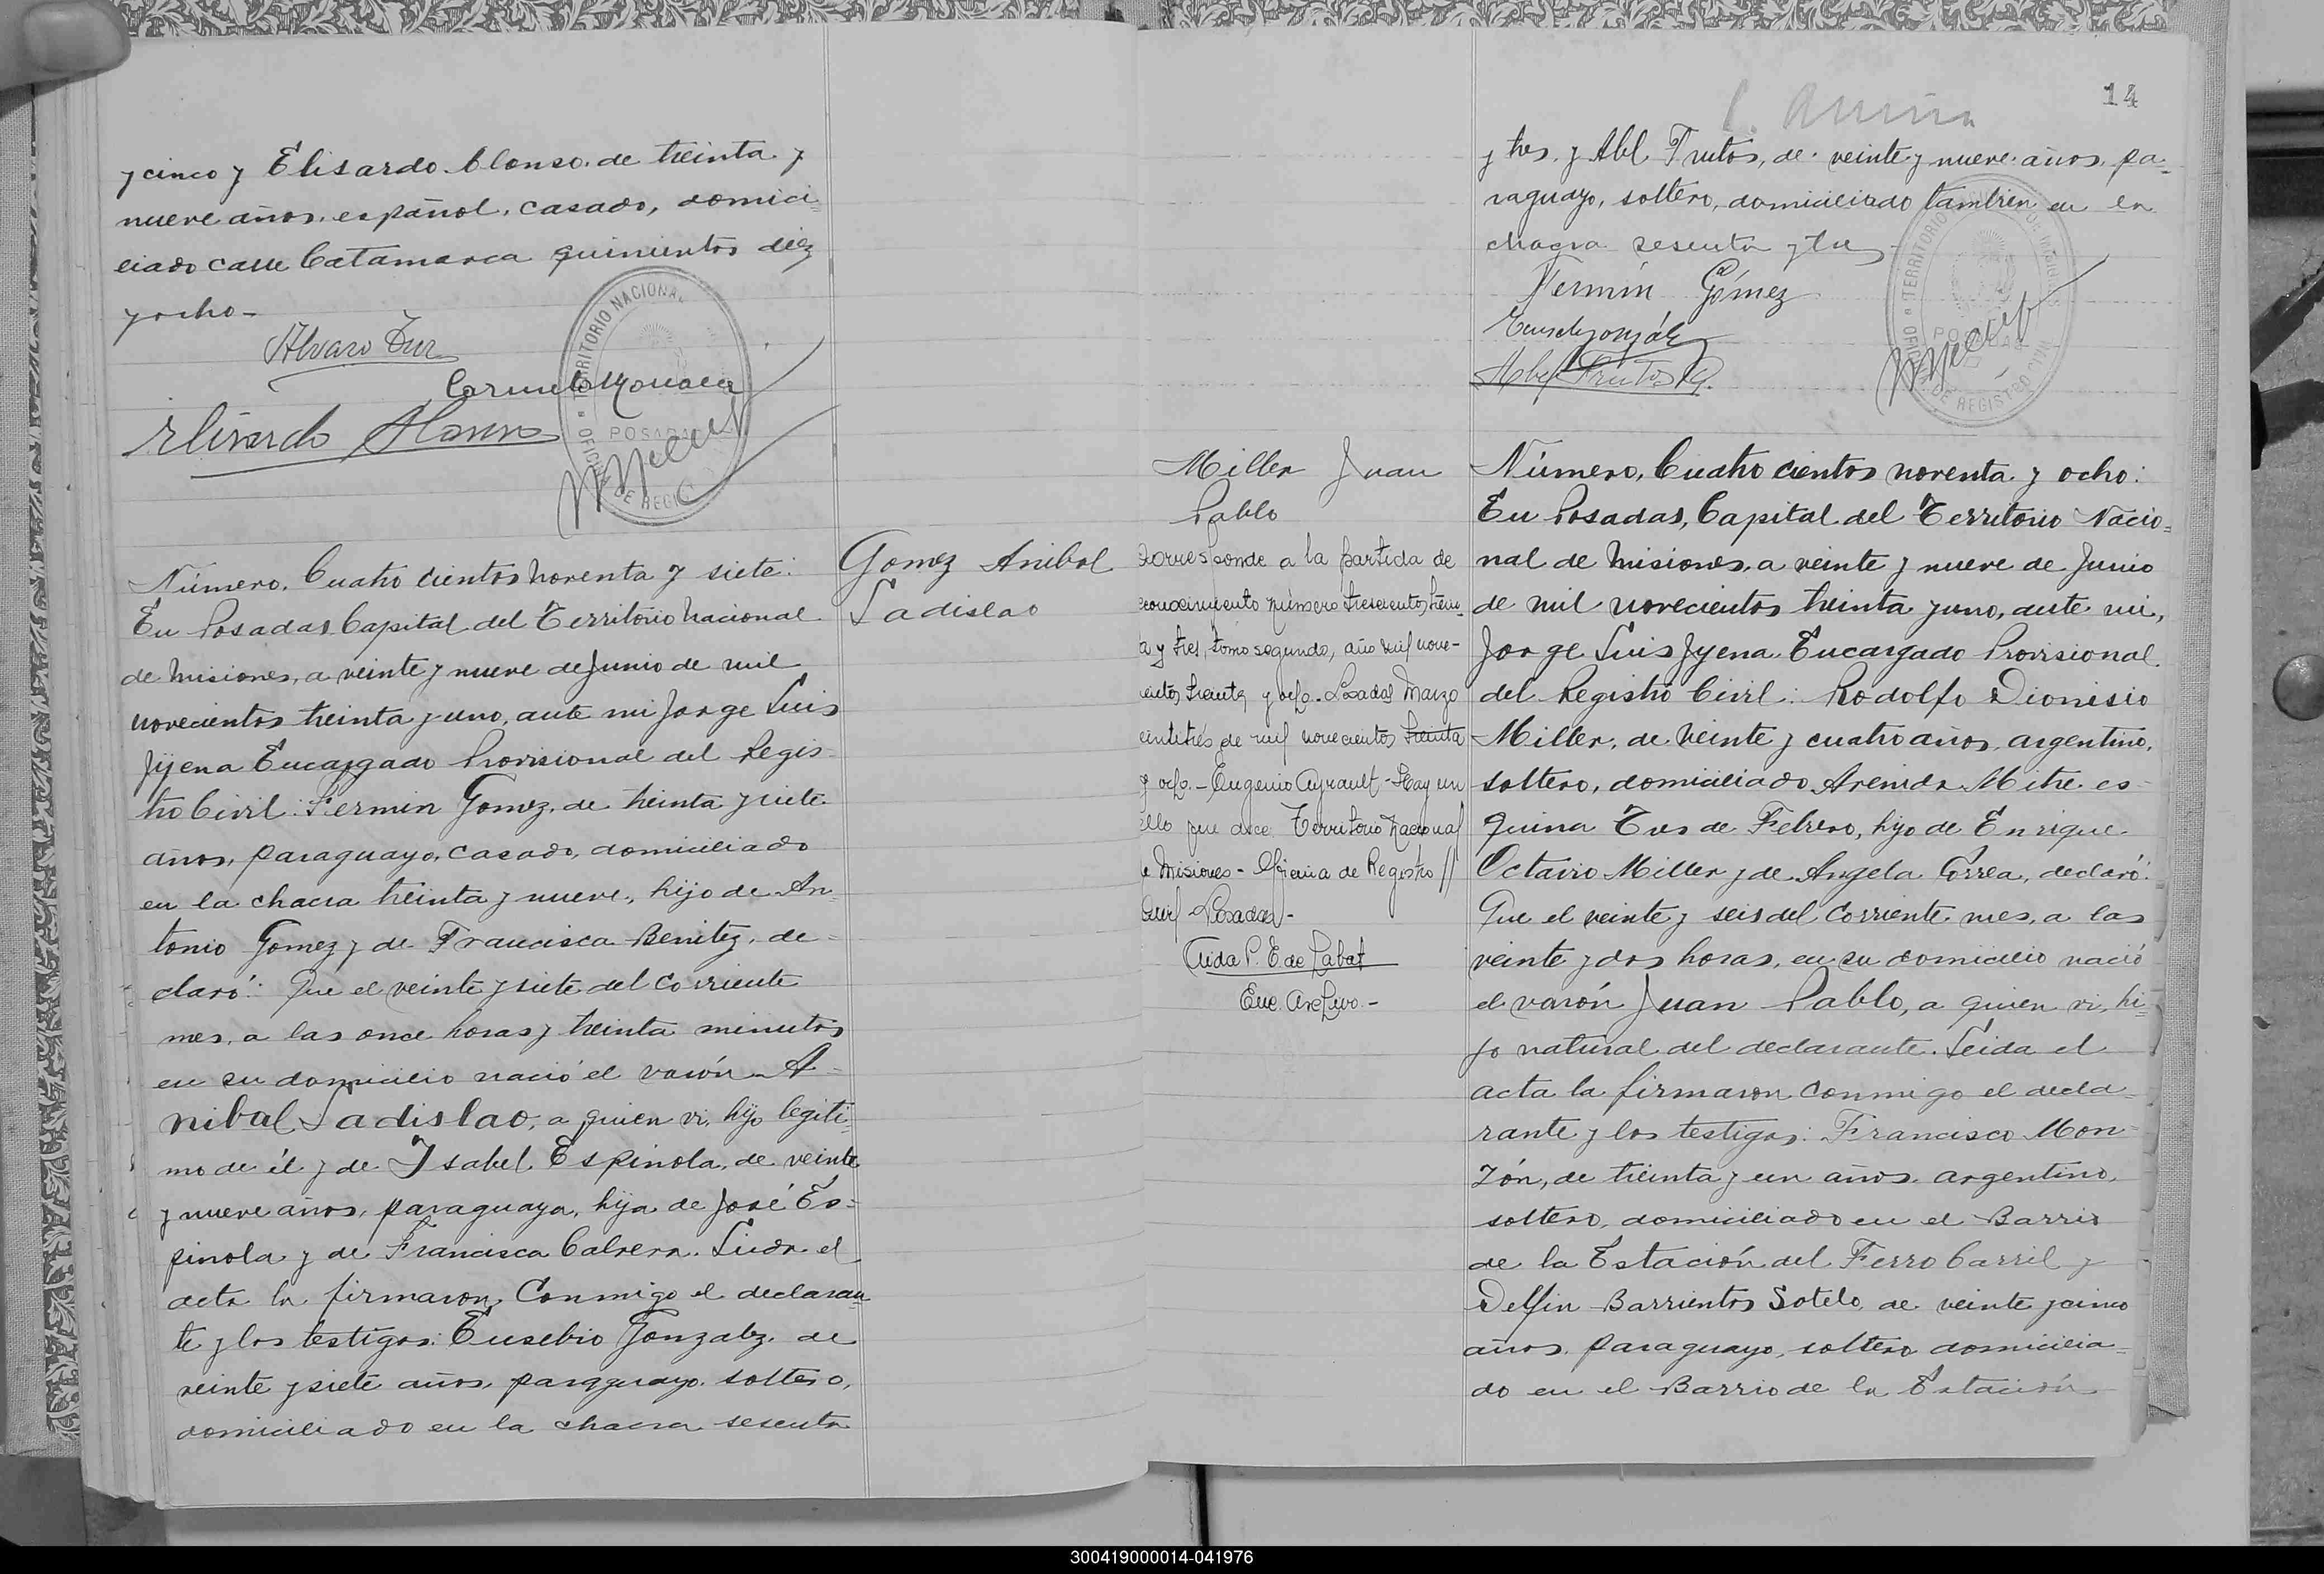 y cinco y Elisardo Alonso, de treinta y
nueve años, español, casado, domici
liado calle Catamarca quinientos diez
y ocho-
Alvaro Tur
Elisardo Alonso
TERRITORIO NACIONAL
POSADAS
Gomez Anibal
Ladislao
Número, Cuatro cientos noventa y siete:
En Posadas, Capital del Territorio Nacional
de Misiones, a veinte y nueve de Junio de mil
novecientos treinta y uno, ante mi Jorge Luis
Jyena Encargado Provisional del Regis-
tro Civil: Fermin Gomez, de treinta y siete
años, paraguayo, casado, domiciliado
en la chacra treinta y nueve, hijo de An-
tonio Gomez y de Francisca Benitez, de-
claró: Que el veinte y siete del corriente
mes, a las once horas y treinta minutos
en su domicilio nació el varón A-
nibal Ladislao, a quien vi, hijo legiti-
mo de él y de Ysabel Espinola, de veinte
y nueve años, paraguaya, hija de José Es-
pinola y de Francisca Cabrera. Leida el
acta la firmaron Conmigo el declaran-
te y los testigos: Eusebio Gonzalez, de
veinte y siete años, paraguayo, soltero,
domiciliado en la chacra sesenta
14
y tres, y Abel Frutos, de veinte y nueve años, pa-
raguayo, soltero, domiciliado tambien en la
chacra sesenta y tres-
Fermín Gómez
Abel Frutos
Miller Juan
Pablo
Corresponde a la partida de
reconocimiento número trescientos trein-
ta y tres, tomo segundo, año mil nove-
cientos treinta y ocho.- Posadas Marzo
veintitrés de mil novecientos treinta
y ocho.- Eugenio Ayrault - Hay un
sello que dice Territorio Nacional
de Misiones - Oficina de Registro //
Civil - Posadas-
Aida P. E. de Labat
Enc. Archivo.-
Número, Cuatro cientos noventa y ocho:
En Posadas, Capital del Territorio Nacio-
nal de Misiones, a veinte y nueve de Junio
de mil novecientos treinta y uno, ante mi,
Jorge Luis Jyena Encargado Provisional
del Registro Civil: Rodolfo Dionisio
Miller, de veinte y cuatro años, argentino,
soltero, domiciliado Avenida Mitre es-
quina Tres de Febrero, hijo de Enrique
Octavio Miller y de Angela Correa, declaró:
Que el veinte y seis del corriente mes, a las
veinte y dos horas, en su domicilio nació
el varón Juan Pablo, a quien vi, hi-
jo natural del declarante. Leida el
acta la firmaron conmigo el decla-
rante y los testigos: Francisco Mon-
zón, de treinta y un años, argentino,
soltero, domiciliado en el Barrio
de la Estación del Ferro Carril y
Delfin Barrientos Sotelo, de veinte y cinco
años, paraguayo, soltero domicilia-
do en el Barrio de la Estación
300419000014-041976